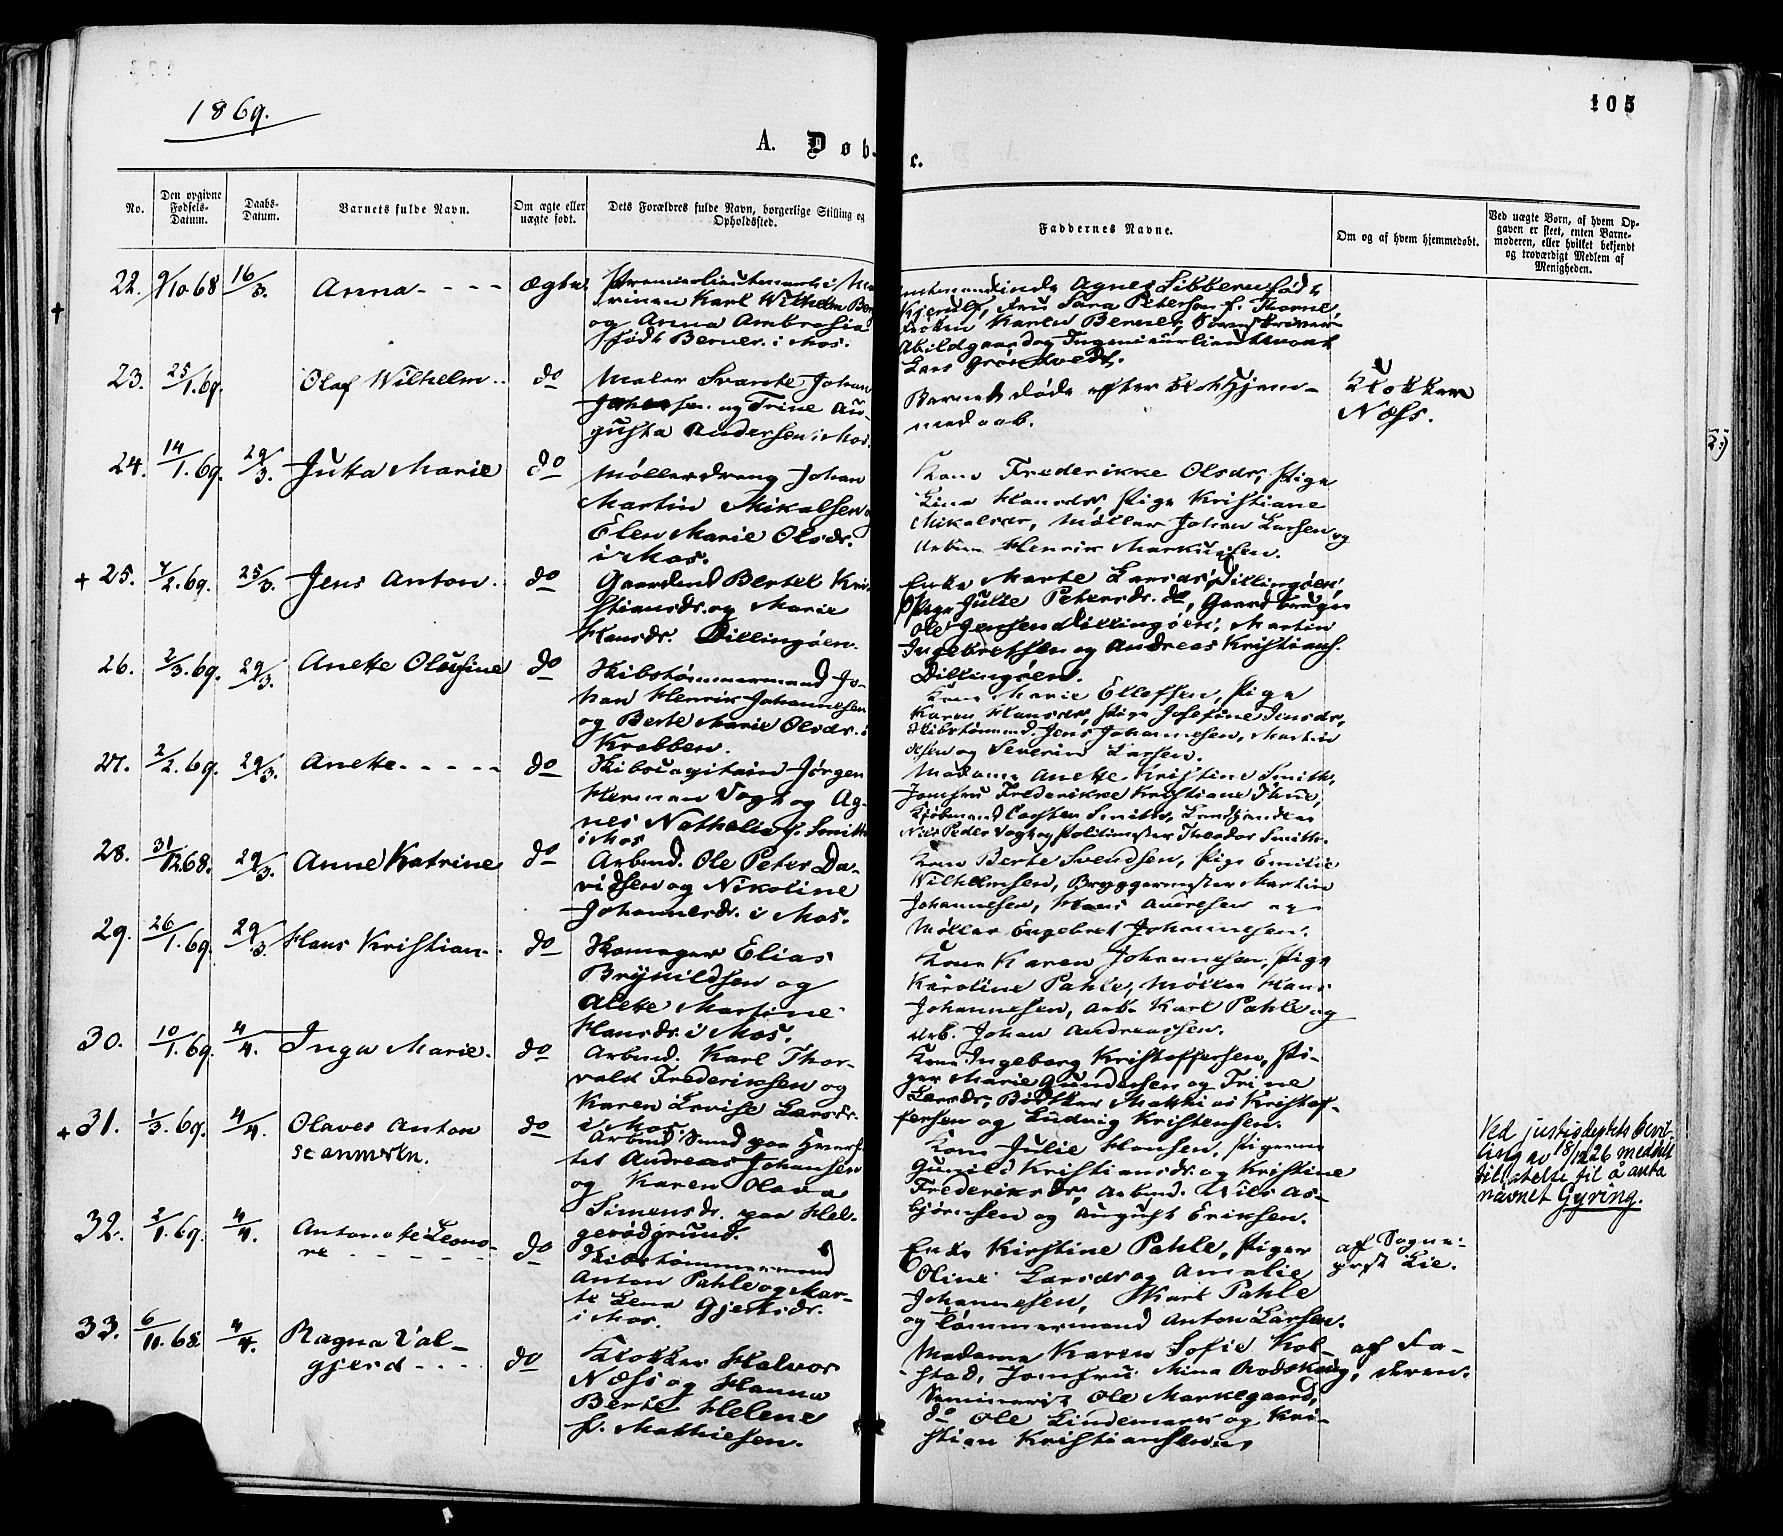 1869.
105
A. Døb-
c.
No.
Den opgivne Fødsels-Datum.
Daabs-Datum.
Barnets fulde Navn.
Om ægte eller uægte født.
Dets Forældres fulde Navn, borgerlige Stilling og Opholdssted.
Faddernes Navne.
Om og af hvem hjemmedøbt.
Ved uægte Børn, af hvem Opgaven er skeet, enten Barnemoderen, eller hvilket bekjendt og troværdigt Medlem af Menigheden.
22. 9/10 68 16/3. Anna - - - - ægte
Premierlieutenant i Ma-
rinen Karl Wilhelm Ber
og Anna Ambrosia
født Berner i Mos.
Agnes Sibbern født
Kjerulf, Fru Sara Petersen f. Thorne,
Karen Berner,
Abildgaard og Ingenieurlieutenant
Lars
23. 25/1. 69. Olaf Wilhelm. do
Maler Svante Johan
og Trine Au-
gusta Andersen i Mos.
Barnet døde efter Hjem-
medaab.
Klokker
Næss.
24. 14/1. 69. 29/3. Jutta Marie do
Møllerdreng Johan
Martin Mikalsen
Elen Marie Olsdr.
i Mos.
Kone Frederikke Olsdr, Pige
Lina Hansdr, Pige Kristiane
Mikalsdr, Møller Johan Larsen og
Henrik Markussen.
+ 25. 7/2. 69. 25/3. Jens Anton. do
Gaardmd Bertel Kri-
stiansdr. og Marie
Hansdr. Dillingøen.
Enke Marte Larsdr, Dillingøen,
Pige Julie Petersdr. do, Gaardbruger
Ole Jensen Dillingøen, Martin
Ingebretsen og Andreas Kristians.
Dillingøen.
26. 2/3. 69. 29/3. Anette Olufine do
Skibstømmermand Jo-
han Henrik Johannesen
og Berte Marie Olsdr. i
Krabben.
Kone Marie Ellefsen, Pige
Karen Hansdr, Pige Josefine Jensdr,
Skibstømmd. Jens Johannesen, Martin
Olsen og Severin Larsen.
27. 2/2. 69. 29/3. Anette - - - - - do
Skibscapitain Jørgen
Herman Vogt og Ag-
nes Nathalia f. Smith
i Mos
Madame Anette Kristine Smith,
Jomfru Frederikke Kristiane
Kjøbmand Carsten Smith,
Nils Peder Vogt og Politimester Theodor Smith.
28. 31/12 68. 29/3. Anne Katrine do
Arbmd. Ole Peter Da-
vidsen og Nikoline
Johannesdr. i Mos.
Kone Berte Svendsen, Pige Emilie
Wilhelmsen, Bryggermester Martin
Johannesen, Hans Andresen og
Møller Engebret Johannesen.
29. 26/1. 69. 29/3. Hans Kristian. do
Skomager Elias
Brynildsen og
Alette Martine
Hansdr. i Mos.
Kone Karen Johannesen, Pige
Karoline Pahle, Møller Hans
Johannesen, Arb. Karl Pahle og
Arb. Johan Andreassen.
30. 10/1. 69. 4/4. Inga Marie. do
Arbmd. Karl Thor-
vald Frederiksen og
Karen Lovise Larsdr.
i Mos.
Kone Ingeborg Kristoffersen, Pi-
ger Marie Gundersen og Trine
Larsdr, Bødker Mathias Kristof-
fersen og Ludvig Kristensen.
+ 31. 1/3. 69. 4/4. Olaves Anton do
se anmerkn.
Arbmd Sand paa
Andreas Johansen
og Karen Olava
Simensdr. paa Hel-
gerødgrund.
Kone Julie Hansen, Pigerne
Gunild Kristiansdr. og Kristine
Frederiksdr, Arbmd. Nils As-
bjørnsen og August Eriksen.
Ved justisdeptets bevil-
ling av 18/12 26 meddelt
tillatelse til å anta
navnet Gyring.
32. 2/1. 69. 4/4. Antonette Leono-
re - - - - - do
Skibstømmermand
Anton Pahle og Mar-
te Lena Gjertsdr.
i Mos.
Enke Kirstine Pahle, Piger
Oline Larsdr og Amalie
Johannesen, Karl Pahle
og Tømmermand Anton Larsen.
af Sogne-
prst Lie.
33. 6/11. 68. 4/4. Ragna Val-
gjerd - - - . do
Klokker Halvor
Næss og Hanna
Berte Helene
f. Mathiesen.
Madame Karen Sofie Kol-
stad, Jomfru Mina Rodskaug,
Seminarist Ole Markegaard,
do Ole Lindemark og Kri-
stian Kristiansen
af Fa-
deren.